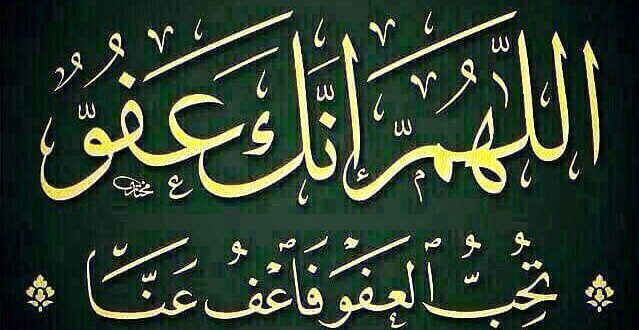 اللّٰهُمَّ إِنَّكَ عَفُوٌّ
تُحِبُّ ٱلْعَفْوَ فَاعْفُ عَنَّا